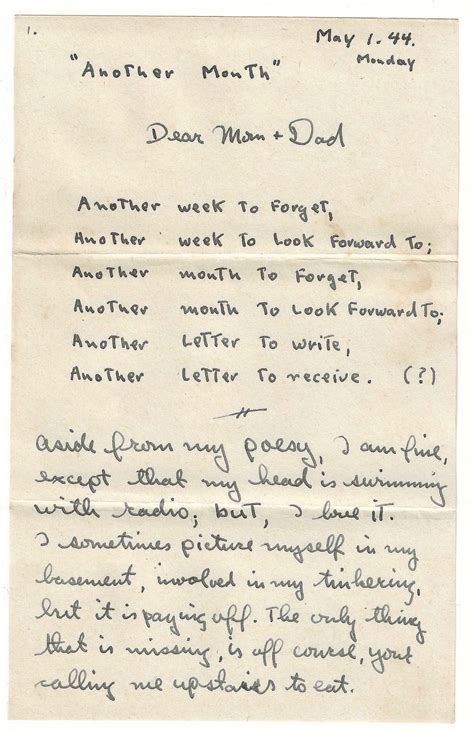 1.
May 1. 44.
Monday
"Another Month"
Dear Mom + Dad
Another week to Forget,
Another week to Look Forward to;
Another month to Forget,
Another month to Look Forward to;
Another Letter to write,
Another Letter to receive. (?)
Aside from my poesy, I am fine,
except that my head is swimming
with radio; but, I love it.
I sometimes picture myself in my
basement, involved in my tinkering,
but it is paying off. The only thing
that is missing, is off course, your
calling me upstairs to eat.